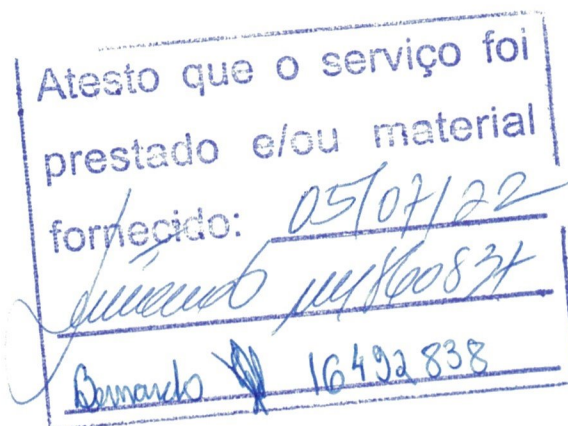 Atesto que o serviço foi
prestado e/ou material
fornecido: 05/07/22
Bernardo 16492838